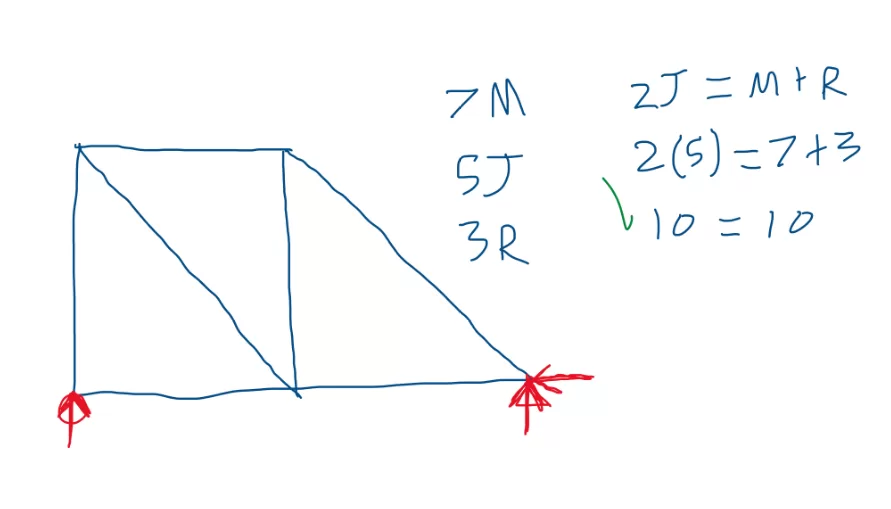 7M
5J
3R
2J = M + R
2(5) = 7 + 3
10 = 10